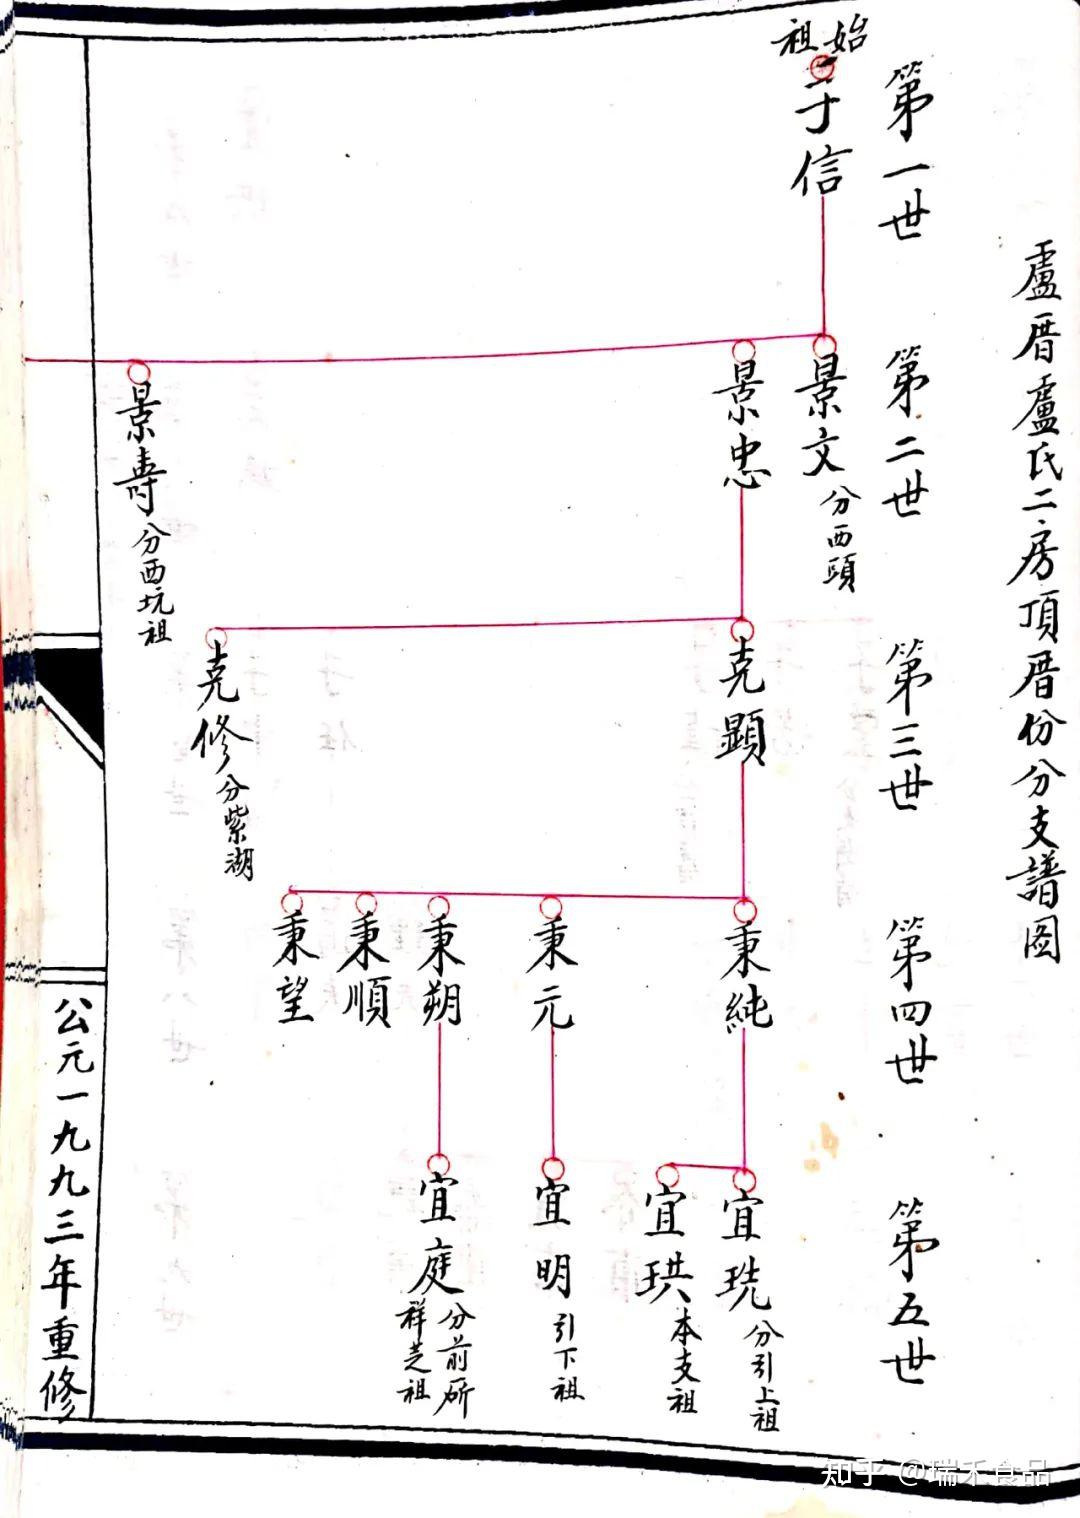 盧厝盧氏二房頂厝份分支譜图
第一世
第二世
第三世
第四世
第五世
始祖
子信
景文 分西頭
景忠
景壽 分西坑祖
克顯
克修 分紫湖
秉純
秉元
秉朔
秉順
秉望
宜珖 分引上祖
宜珙 本支祖
宜明 引下祖
宜庭 分前斫
祥芝祖
公元一九九三年重修
知乎 @瑞禾食品